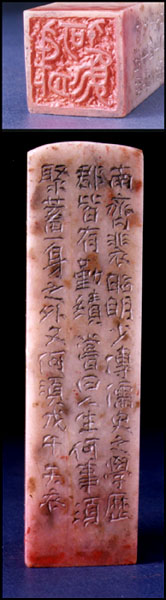 南齐裴昭明少傳儒史之學歷
郡皆有勤績嘗曰人生何事須
聚蓄一身之外又何須戊午天